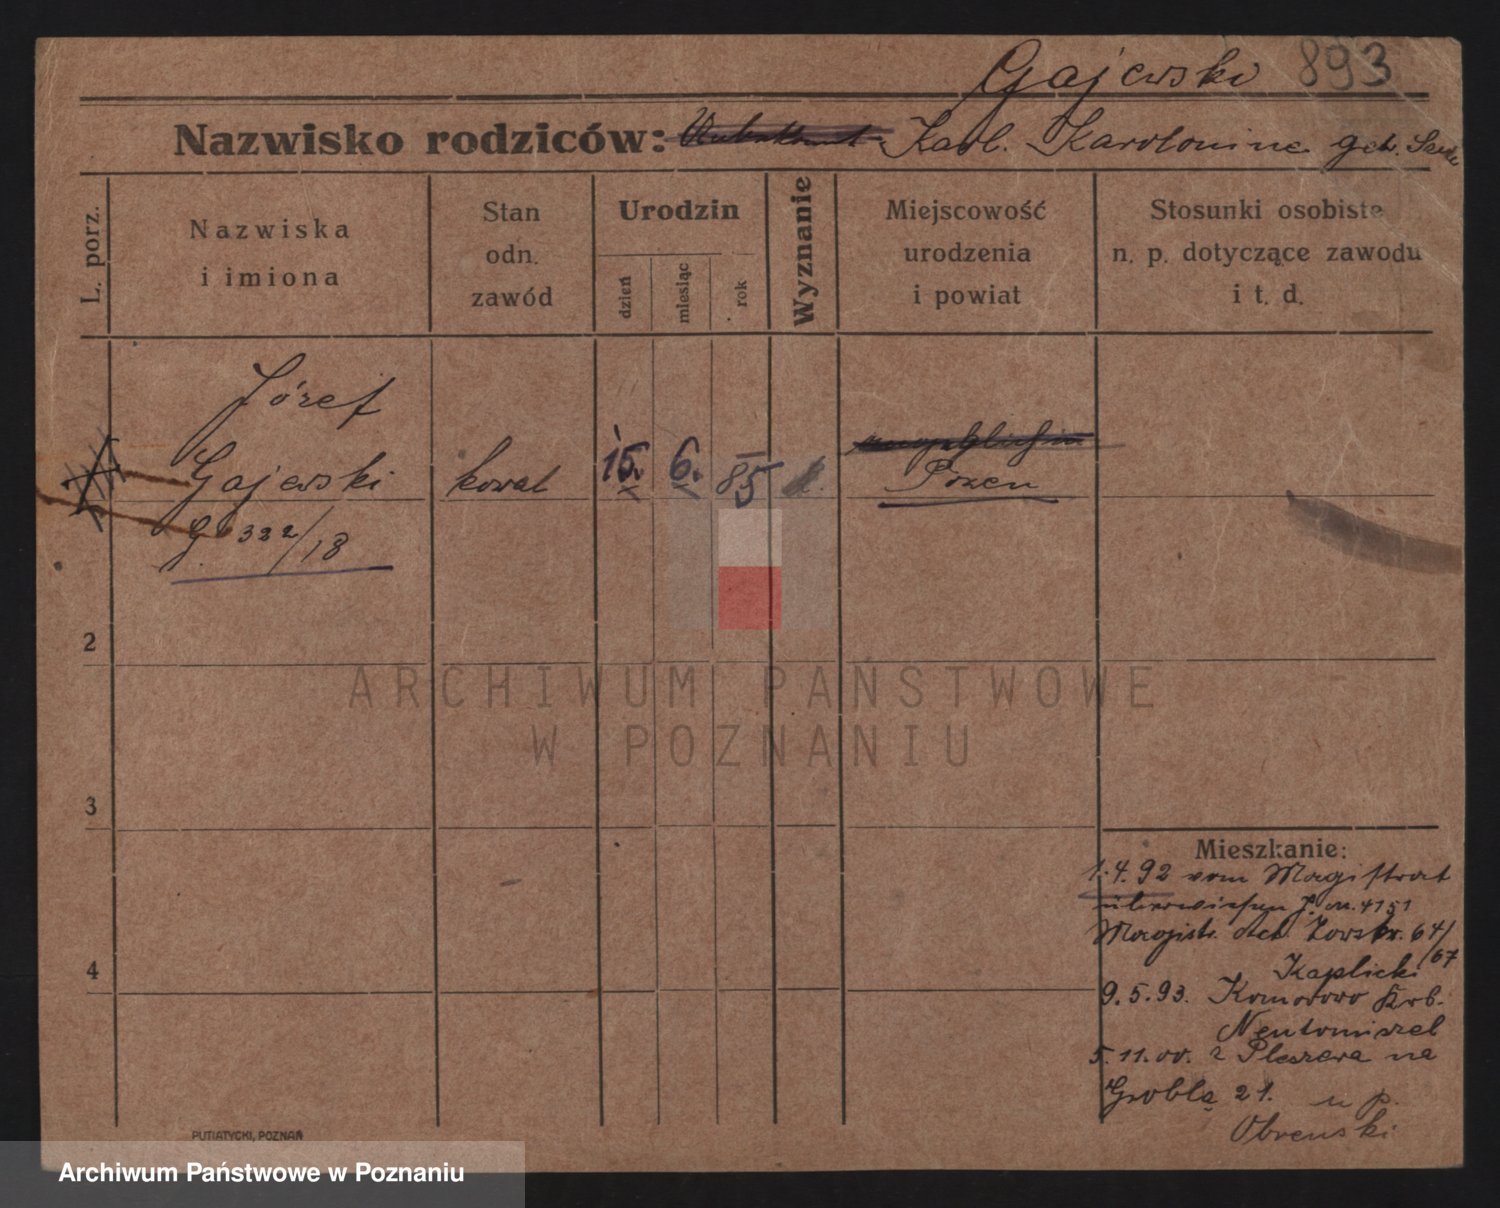 Gajewski 893
Nazwisko rodziców: Karl. Karoloninie geb.
L. porz.
Nazwiska
i imiona
Stan
odn.
zawód
Urodzin
dzień
miesiąc
rok
Wyznanie
Miejscowość
urodzenia
i powiat
Stosunki osobiste
n. p. dotyczące zawodu
i t. d.
Józef
Gajewski kowal 15. 6. 85 k. Posen
G. 322/18
2
3
4
ARCHIWUM PAŃSTWOWE
W POZNANIU
Mieszkanie:
1.4.92 vom Magistrat
überwiesen J. n. 4151
Magistr. 64/67
Kaplicki
9.5.93. Komorowo Krb.
Neutomischel
5.11.00. z Pleszewa na
Groblą 21. u p.
Obrenski
PUTIATYCKI, POZNAŃ
Archiwum Państwowe w Poznaniu